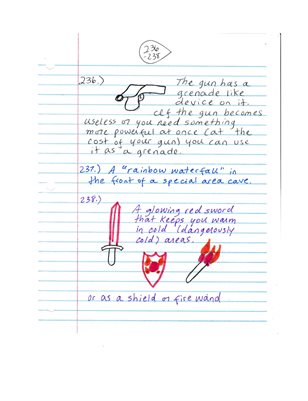 236
-238
236.) The gun has a
grenade like
device on it.
If the gun becomes
useless or you need something
more powerful at once (at the
cost of your gun) you can use
it as a grenade.
237.) A "rainbow waterfall" in
the front of a special area cave.
238.) A glowing red sword
that keeps you warm
in cold (dangerously
cold) areas.
or as a shield or fire wand